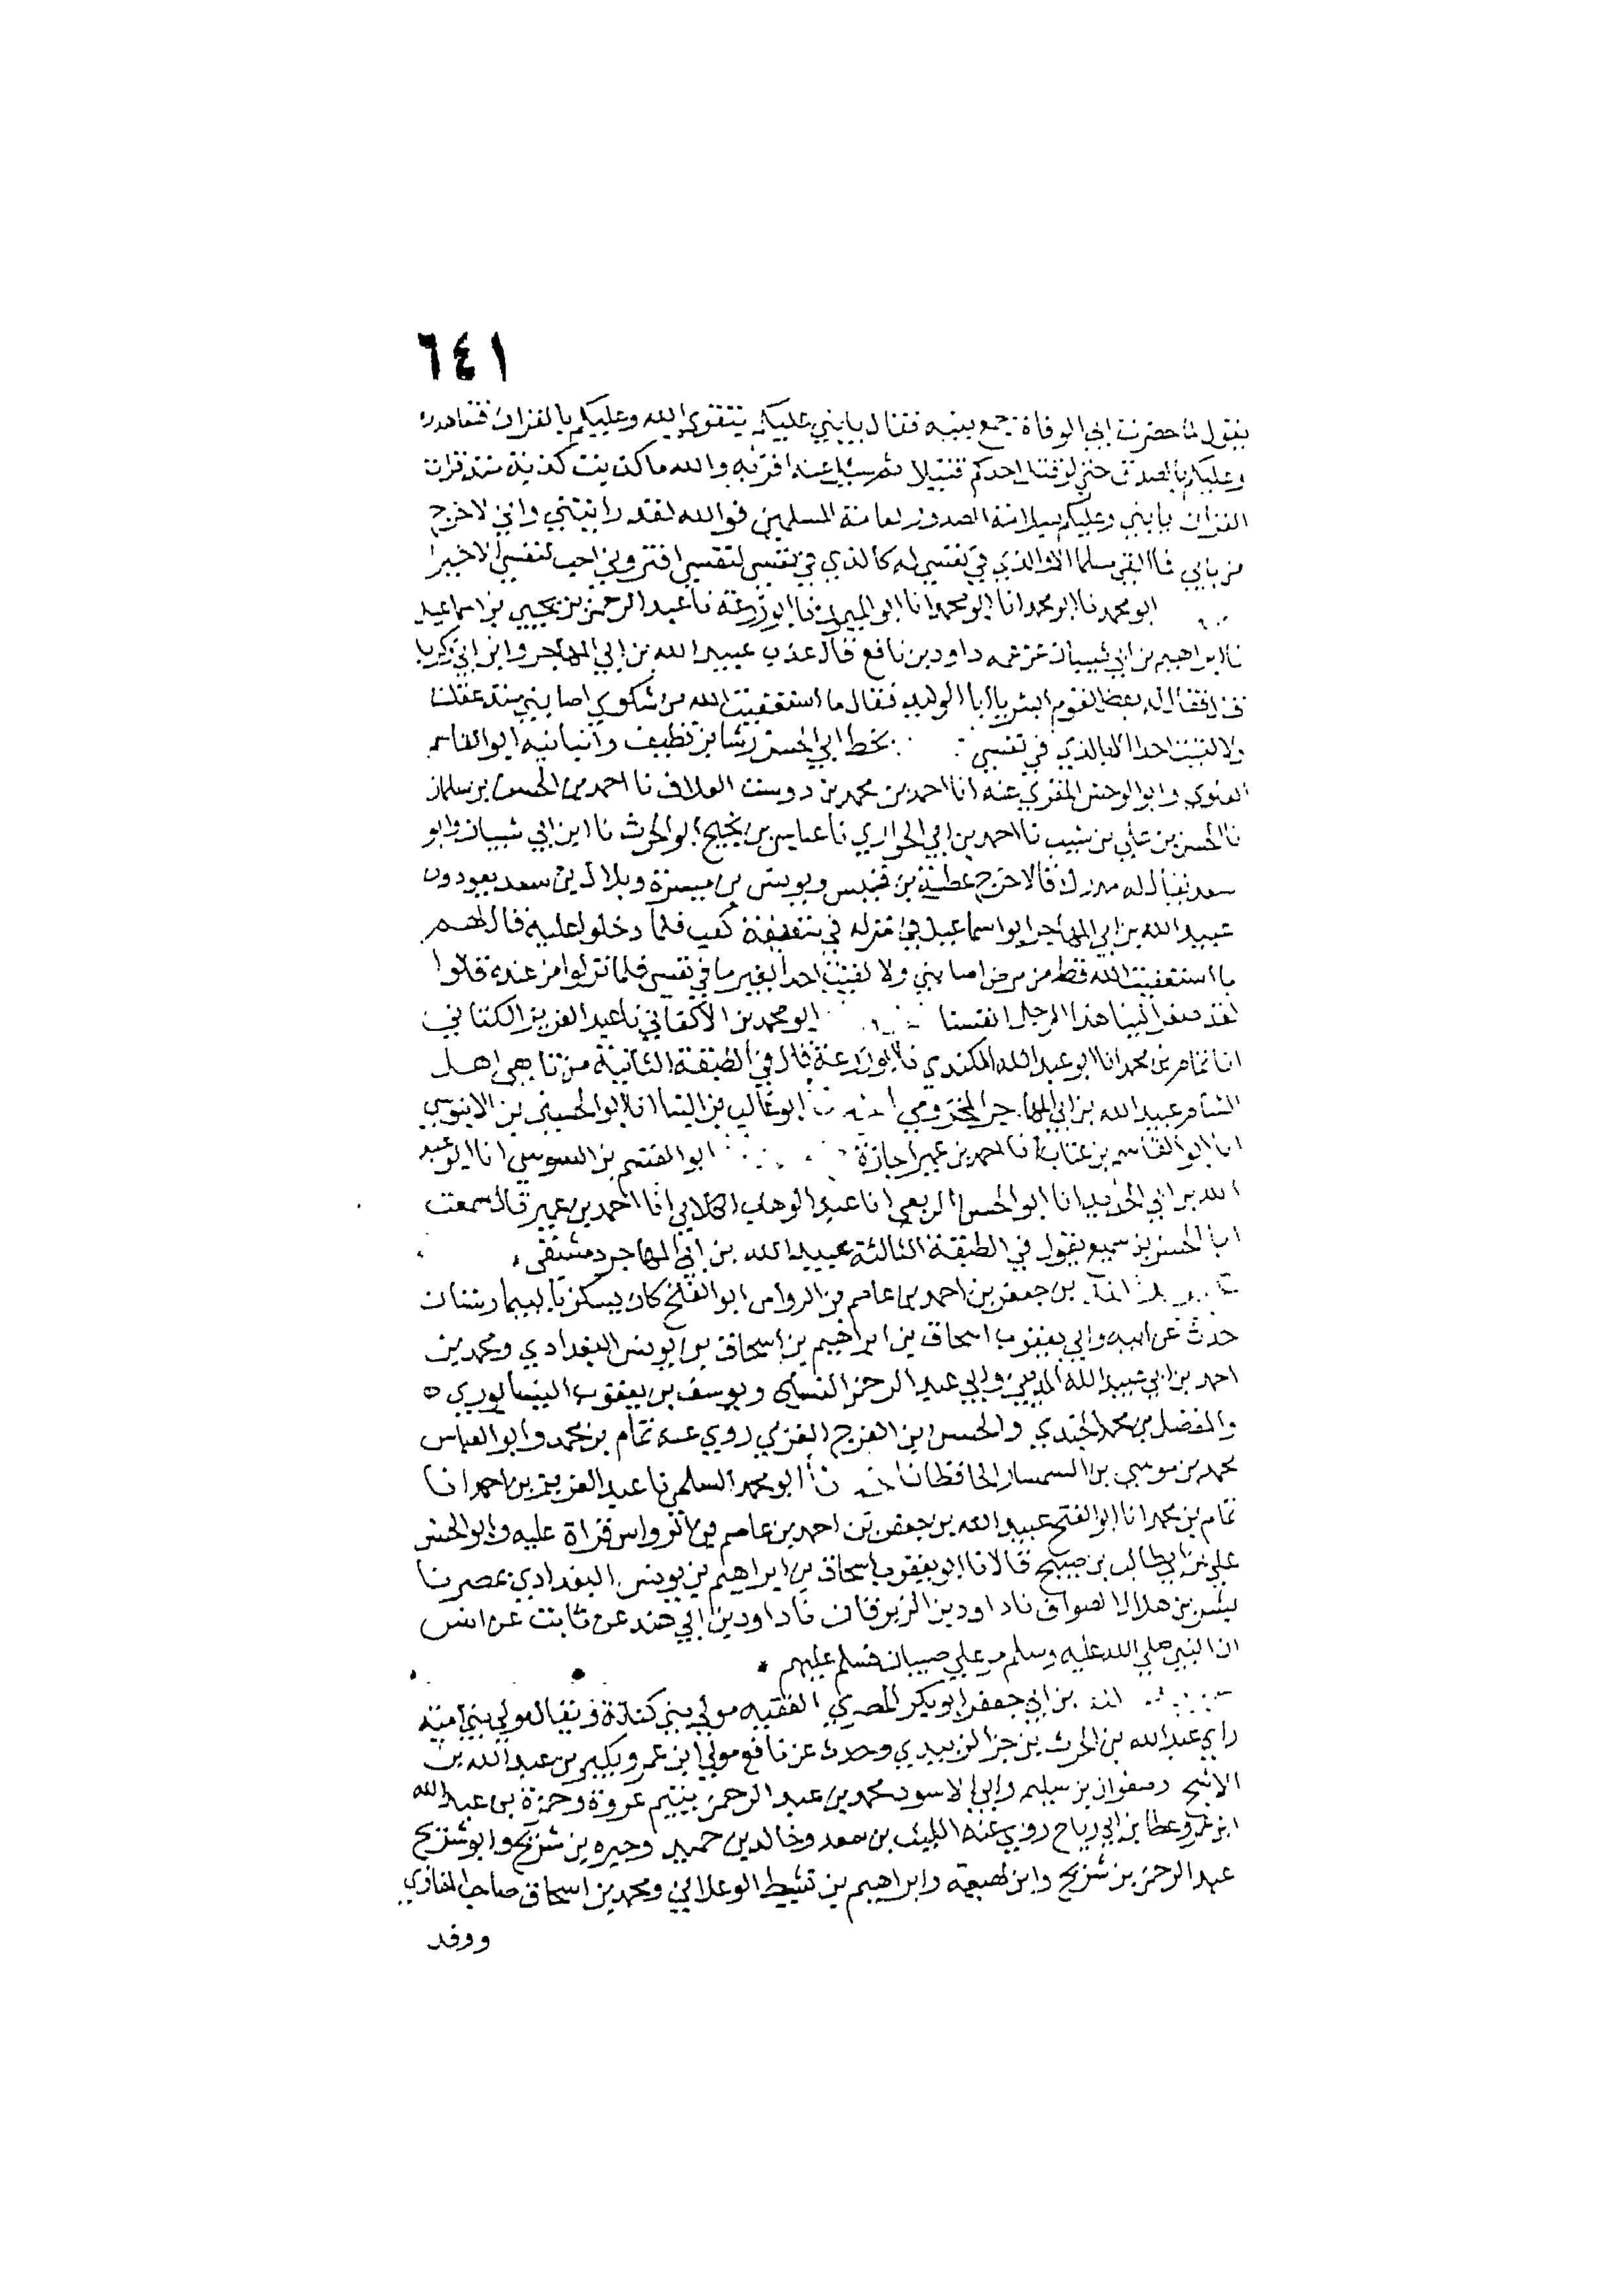 ٦٤١
يقول لما حضرت ابي الوفاة جمع بنيه فقال يا بني عليكم بتقوى الله وعليكم بالقران فتعاهدوه
وعليكم بالصدق حتى لو قتل احدكم قتيلا ثم سيل عنه اقر به والله ما كذبت كذبة منذ قرات
القران يا بني وعليكم بسلامة الصدور لعامة المسلمين فوالله لقد رايتني واني لاخرج
من بابي فما القى مسلما الا والذي في نفسي له كالذي في نفسي لنفسي افتروني احب لنفسي الا خيرا
ابو محمد نا ابو محمد انا ابو محمد انا ابو الميمون نا ابو زرعة نا عبد الرحمن بن يحيى بن اسماعيل
نا ابراهيم بن ابي شيبان عن عمه داود بن نافع قال عدت عبيد الله بن ابي المهاجر وابن ابي زكريا
فقال له بعض القوم ابشر يا ابا الوليد فقال ما استعفيت الله من شكوى اصابتني منذ عقلت
ولا لقيت احدا الا بالذي في نفسي بخط ابي الحسن رشا بن نظيف وانبانيه ابو القاسم
العلوي وابو الوحش المقري عنه انا احمد بن محمد بن دوست العلاف نا احمد بن الحسن بن سلمان
نا الحسن بن علي بن شبيب نا احمد بن ابي الحواري نا عباس بن نجيح ابو الحرث نا ابن ابي شيبان وابو
سعد يقال له مدرك قالا خرج عطية بن قيس ويونس بن ميسرة وبلال بن سعد يعودون
عبيد الله بن ابي المهاجر ابو اسماعيل في منزله في كعب فلما دخلوا عليه قال لهم
ما استعفيت الله قط من مرض اصابني ولا لقيت احدا بغير ما في نفسي فلما نزلوا من عنده قالوا
لقد صغر الينا هذا الرجل انفسنا ابو محمد بن الاكفاني نا عبد العزيز الكتاني
انا تمام بن محمد انا ابو عبد الله الكندي نا ابو زرعة قال في الطبقة الثانية من تابعي اهل
الشام عبيد الله بن ابي المهاجر المخزومي ابو غالب بن البنا انا ابو الحسين بن الابنوسي
انا ابو القاسم بن عتاب انا احمد بن عمير اجازة ابو القسم بن السوسي انا ابو عبد
الله بن ابي الحديد انا ابو الحسن الربعي انا عبد الوهاب الكلابي انا احمد بن عمير قال سمعت
ابا الحسن بن سميع يقول في الطبقة الثالثة عبيد الله بن ابي المهاجر دمشقي
بن جعفر بن احمد بن عاصم بن الرواس ابو الفتح كان يسكن بالبيمارستان
حدث عن ابيه وابي يعقوب اسحاق بن ابراهيم بن اسحاق بن يونس البغدادي ومحمد بن
احمد بن ابي عبيد الله المديني وابي عبد الرحمن النسائي ويوسف بن يعقوب النيسابوري ٥
والمفضل بن محمد الجندي والحسن ابن الفرج الغزي روي عنه تمام بن محمد وابو العباس
محمد بن موسى بن السمسار الحافظان ابو محمد السلمي نا عبد العزيز بن احمد انا
تمام بن محمد انا ابو الفتح عبيد الله بن جعفر بن احمد بن عاصم بن الرواس قراة عليه وابو الحسن
علي بن ابي طالب بن صبيح قالا نا ابو يعقوب اسحاق بن ابراهيم بن يونس البغدادي بمصر نا
بشر بن هلال الصواف نا داود بن الزبرقان نا داود بن ابي هند عن ثابت عن انس
ان النبي صلي الله عليه وسلم مر علي صبيان فسلم عليهم
بن ابي جعفر ابو بكر المصري الفقيه مولي بني كنانة ويقال مولي بني امية
راي عبد الله بن الحرث بن جز الزبيدي وحدث عن نافع مولي ابن عمر وبكير بن عبد الله بن
الاشج وصفوان بن سليم وابي الاسود محمد بن عبد الرحمن يتيم عروة وحمزة بن عبد الله
ابن عمر وعطا بن ابي رباح روي عنه الليث بن سعد وخالد بن حميد وحيوه بن شريح وابو شريح
عبد الرحمن بن شريح وابن لهيعة وابراهيم بن نشيط الوعلاني ومحمد بن اسحاق صاحب المغازي
ووفد